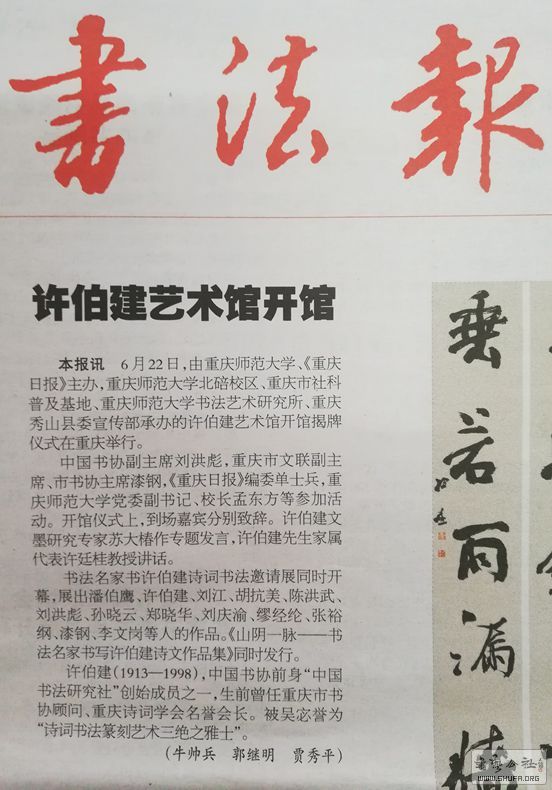 书法报
许伯建艺术馆开馆
本报讯 6月22日，由重庆师范大学、《重庆
日报》主办，重庆师范大学北碚校区、重庆市社科
普及基地、重庆师范大学书法艺术研究所、重庆
秀山县委宣传部承办的许伯建艺术馆开馆揭牌
仪式在重庆举行。
中国书协副主席刘洪彪，重庆市文联副主
席、市书协主席漆钢，《重庆日报》编委单士兵，重
庆师范大学党委副书记、校长孟东方等参加活
动。开馆仪式上，到场嘉宾分别致辞。许伯建文
墨研究专家苏大椿作专题发言，许伯建先生家属
代表许廷桂教授讲话。
书法名家书许伯建诗词书法邀请展同时开
幕，展出潘伯鹰、许伯建、刘江、胡抗美、陈洪武、
刘洪彪、孙晓云、郑晓华、刘庆渝、缪经纶、张裕
纲、漆钢、李文岗等人的作品。《山阴一脉——书
法名家书写许伯建诗文作品集》同时发行。
许伯建（1913—1998），中国书协前身“中国
书法研究社”创始成员之一，生前曾任重庆市书
协顾问、重庆诗词学会名誉会长。被吴宓誉为
“诗词书法篆刻艺术三绝之雅士”。
（牛帅兵 郭继明 贾秀平）
垂若雨满
WWW.SHUFA.ORG